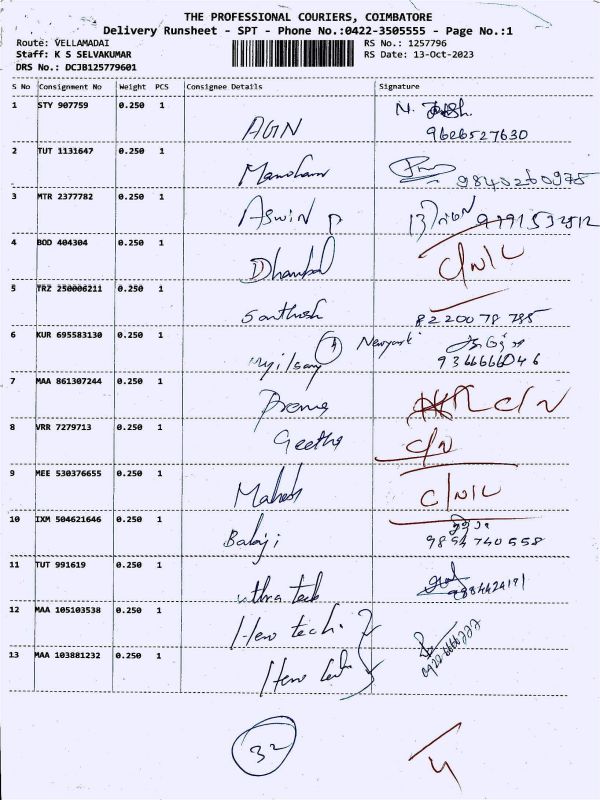 THE PROFESSIONAL COURIERS, COIMBATORE
Delivery Runsheet - SPT - Phone No.:0422-3505555 - Page No.:1
Route: VELLAMADAI RS No.: 1257796
Staff: K S SELVAKUMAR RS Date: 13-Oct-2023
DRS No.: DCJB125779601
S No Consignment No Weight PCS Consignee Details Signature
1 STY 907759 0.250 1 AGN N.
9626527630
2 TUT 1131647 0.250 1 Manoharn 9840260975
3 MTR 2377782 0.250 1 Aswin P
4 BOD 404304 0.250 1 Dhanbal C/N/L
5 TRZ 250006211 0.250 1 Santhosh 8220078785
6 KUR 695583130 0.250 1 Newyork
9366666046
7 MAA 861307244 0.250 1 Prema C/N
8 VRR 7279713 0.250 1 Geetha C/N
9 MEE 530376655 0.250 1 Mahesh C/N/L
10 IXM 504621646 0.250 1 Balaji
9854740558
11 TUT 991619 0.250 1 uthra tech
12 MAA 105103538 0.250 1 Hero tech.
13 MAA 103881232 0.250 1 Hero tech
32 4